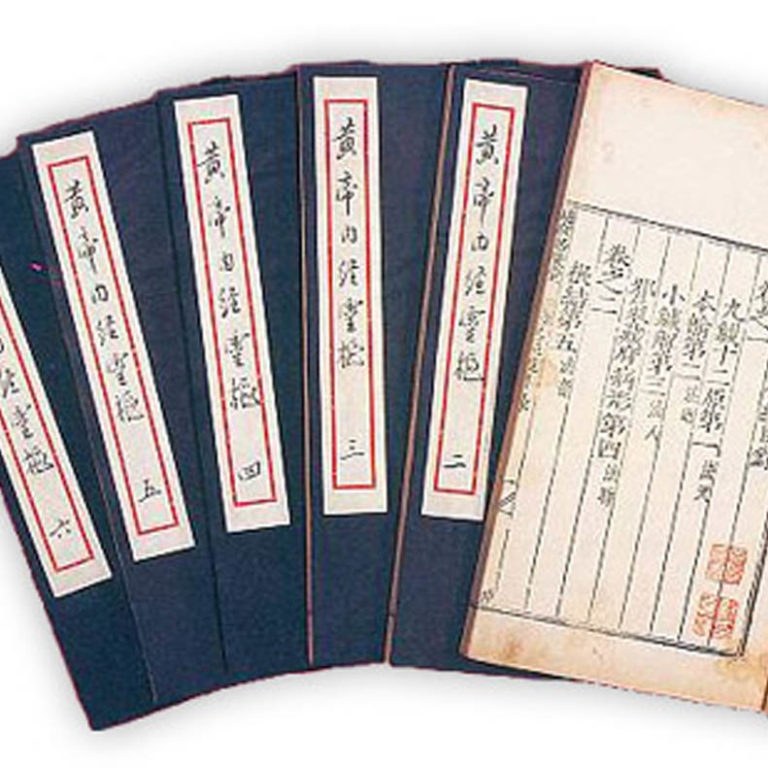 九鍼十二原第一 法天
本輸第二 法地
小鍼解第三 法人
邪氣藏府病形第四 法時
卷之二
根結第五 法音
黃帝內經靈樞 二
黃帝內經靈樞 三
黃帝內經靈樞 四
黃帝內經靈樞 五
經靈樞 六